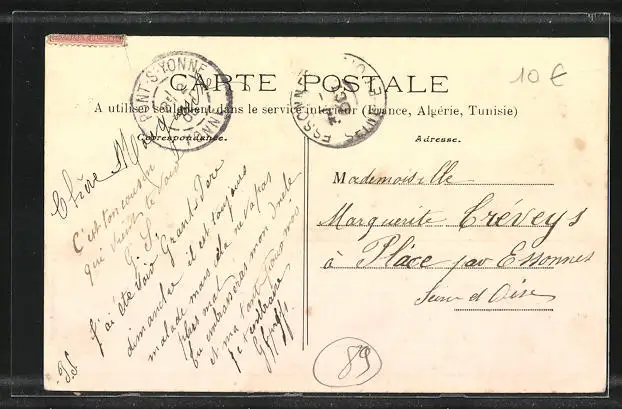 CARTE POSTALE
A utiliser seulement dans le service intérieur (France, Algérie, Tunisie)
Correspondance.
Adresse.
10 €
PONT-S-YONNE
YONNE
ESSONNES
Chère
C'est ton cousin
qui vient te
J'ai été voir Grand père
dimanche il est toujours
malade mais cela ne va pas
plus mal
Tu embrasseras mon oncle
et ma tante pour moi
Je t'embrasse
Mademoiselle
Marguerite Créveys
à Place par Essonnes
Seine et Oise
89